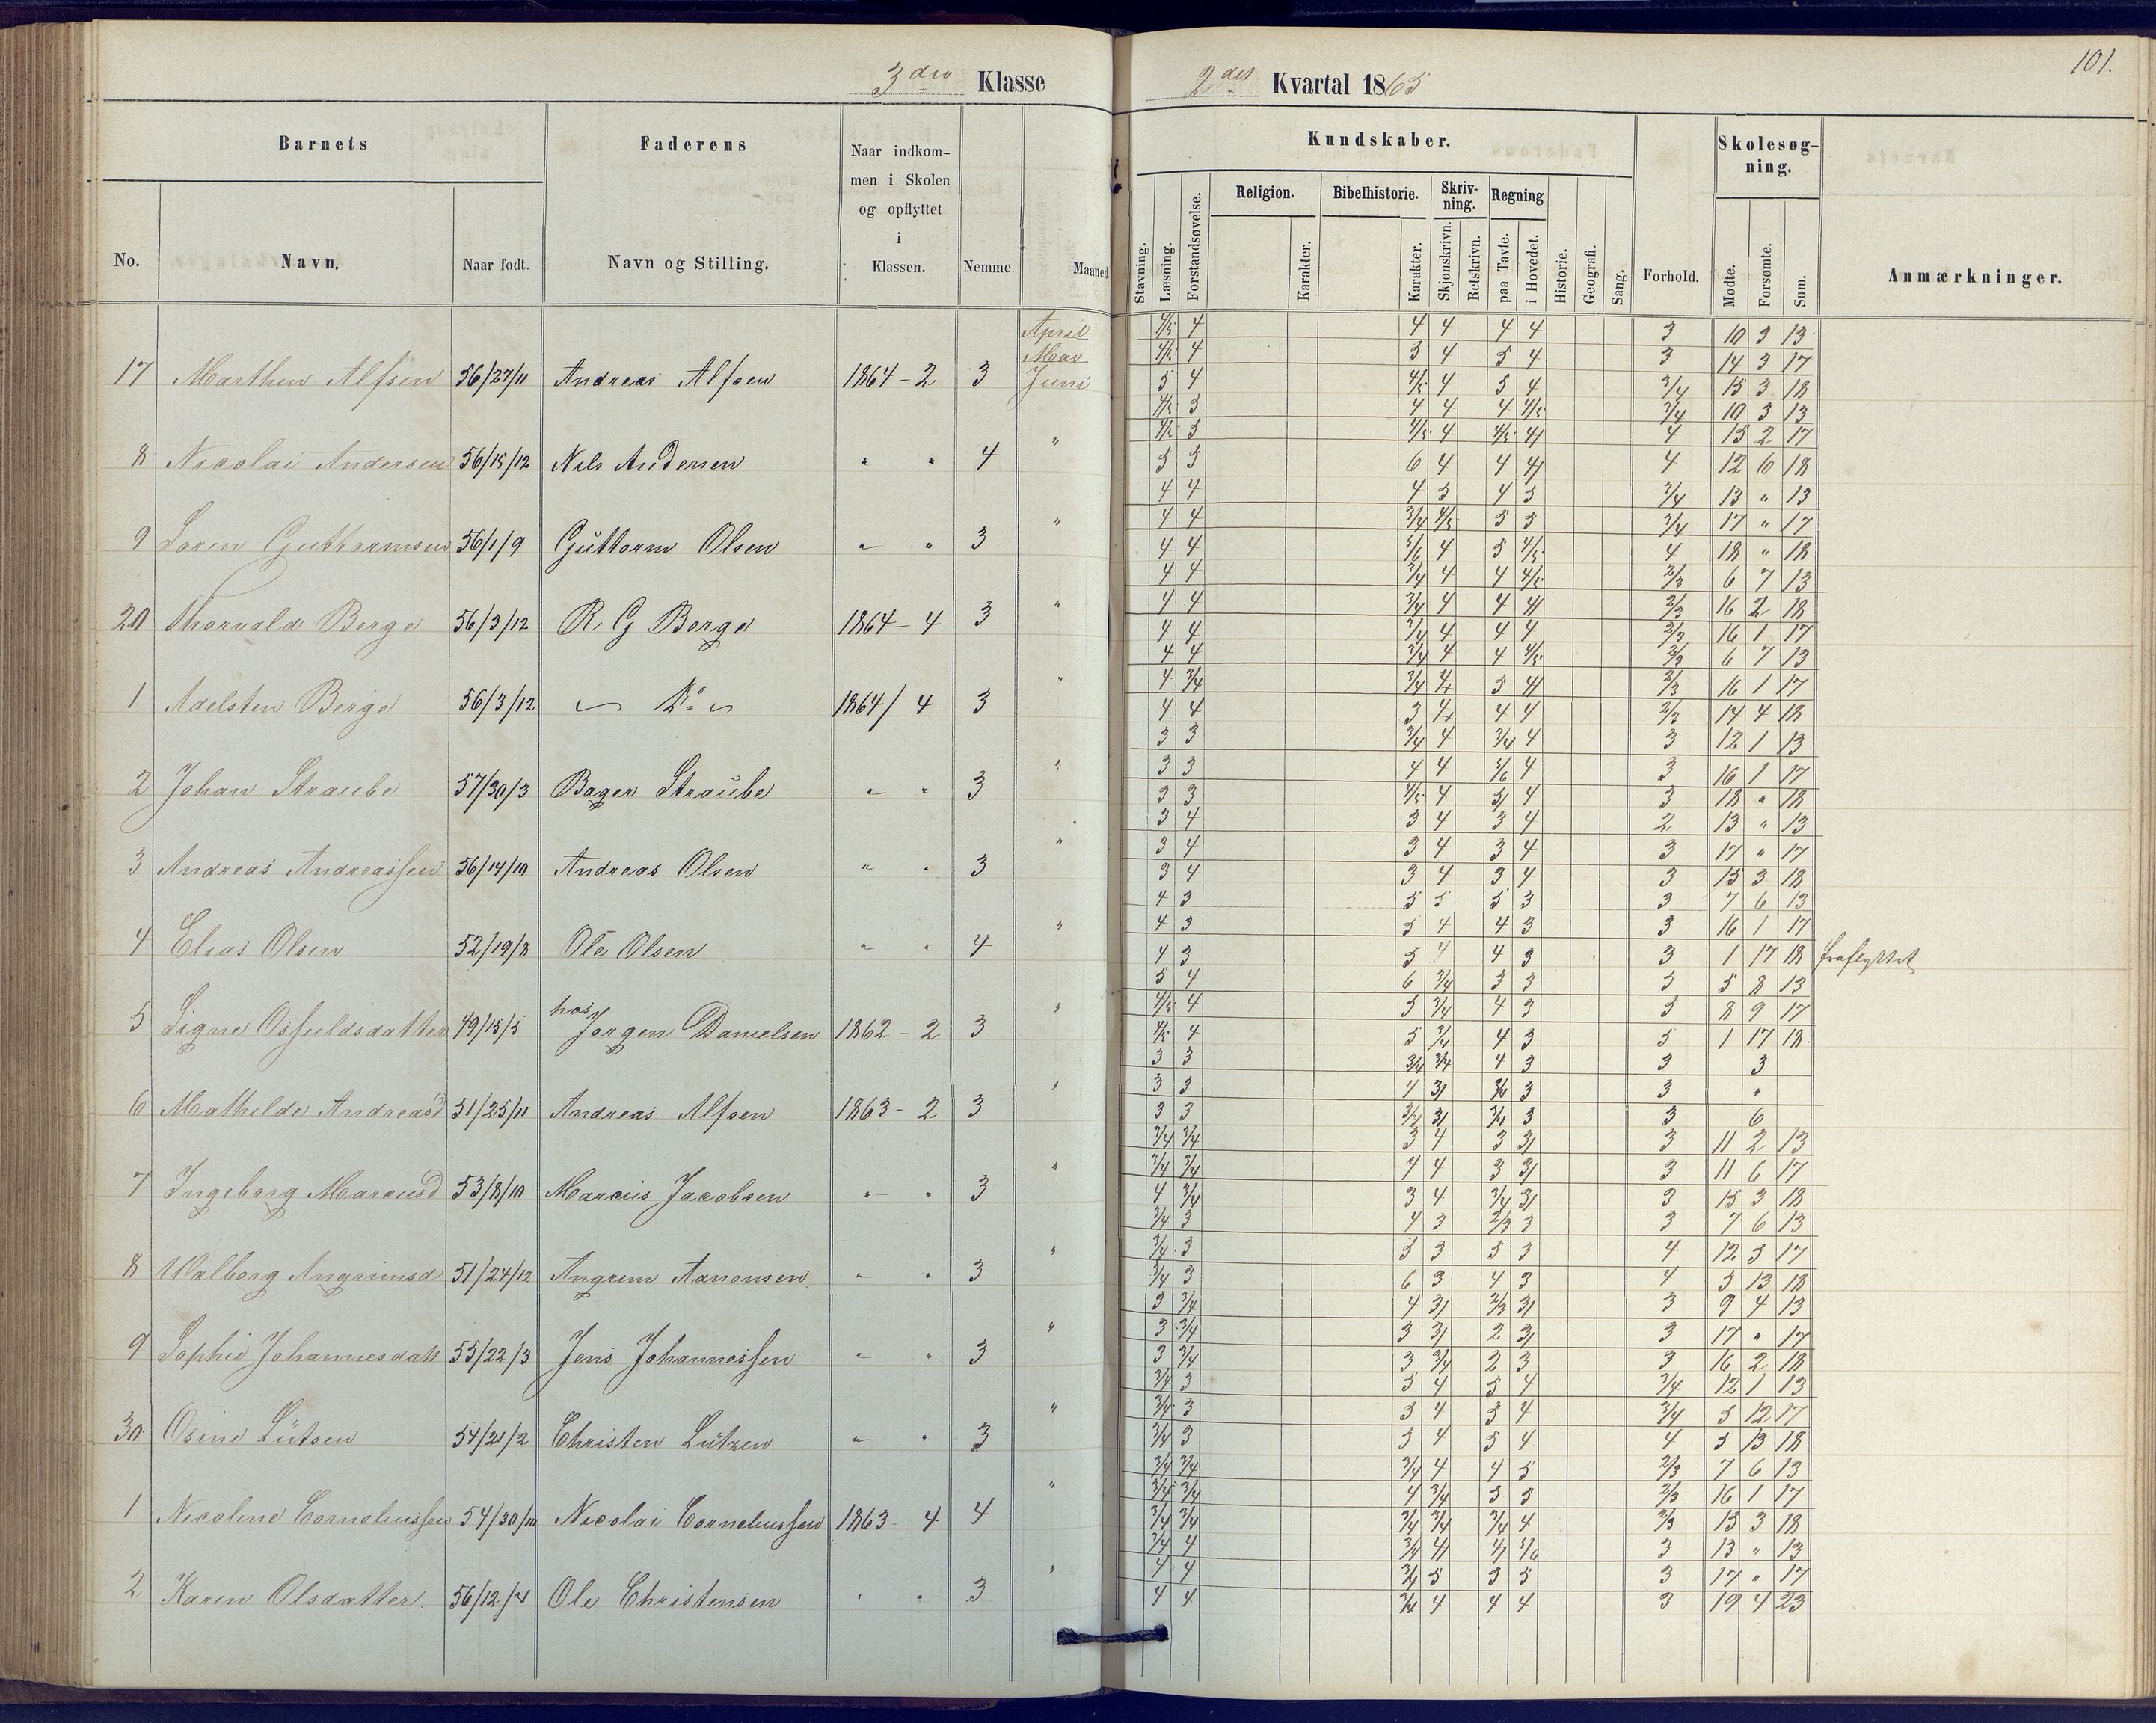 101.
3die Klasse 2det Kvartal 1865
Barnets Faderens Naar indkommen i Skolen og opflyttet i Klassen. Nemme. Maaned Kundskaber. Forhold. Skolesøgning. Anmærkninger.
No. Navn. Naar født. Navn og Stilling.
Stavning. Læsning. Forstandsøvelse. Religion. Karakter. Bibelhistorie. Karakter. Skrivning. Skjønskrivn. Retskrivn. Regning paa Tavle. i Hovedet. Historie. Geografi. Sang. Mødte. Forsømte. Sum.
April 4/5 4 4 4 4 4 3 10 3 13
Mai 4/5 4 5 4 5 4 3 14 3 17
17 Marthin Alfsen 56/27/11 Andreas Alfsen 1864-2 3 Juni 5 4 4/5 4 5 4 3/4 15 3 18
4/5 5 4 4 4 4/5 3/4 10 3 13
" 4/5 5 4/5 4 4/5 4 4 15 2 17
8 Nicolai Andersen 56/15/12 Nils Andersen " " 4 5 5 6 4 4 4 4 12 6 18
4 4 4 5 4 5 3/4 13 " 13
" 4 4 3/4 4/5 5 5 3/4 17 " 17
9 Søren Guttormsen 56/1/9 Guttorm Olsen " " 3 4 4 5/6 4 5 4/5 4 18 " 18
4 4 3/4 4 4 4/5 2/3 6 7 13
" 4 4 3/4 4 4 4 2/3 16 2 18
20 Thorvald Berge 56/3/12 R. G Berge 1864-4 3 4 4 3/4 4 4 4 2/3 16 1 17
4 4 3/4 4 4 4/5 2/3 6 7 13
" 4 3/4 3/4 4 5 4 2/3 16 1 17
1 Adelsten Berge 56/3/12 Do 1864/4 3 4 4 3 4 4 4 2/3 14 4 18
3 3 3/4 4 3/4 4 3 12 1 13
" 3 3 4 4 5/6 4 3 16 1 17
2 Johan Straube 57/30/3 Bager Straube " " 3 3 3 4/5 4 5 4 3 18 " 18
3 4 3 4 3 4 2 13 " 13
" 3 4 3 4 3 4 3 17 " 17
3 Andreas Andreassen 56/14/10 Andreas Olsen " " 3 3 4 3 4 3 4 3 15 3 18
4 3 5 5 5 3 3 7 6 13
" 4 3 5 4 4 3 3 16 1 17
4 Elias Olsen 52/19/8 Ole Olsen " " 4 4 3 5 4 4 3 3 1 17 18 fraflyttet
5 4 6 3/4 3 3 3 5 8 13
hos " 4/5 4 5 3/4 4 3 5 8 9 17
5 Signe Osfuldsdatter 49/15/5 Jørgen Danielsen 1862-2 3 4/5 4 5 3/4 4 3 5 1 17 18
3 3 3/4 3/4 4 3 3 3
" 3 3 4 3 3/4 3 3 "
6 Mathilde Andreasd 51/25/11 Andreas Alfsen 1863-2 3 3 3 3/4 3 3/4 3 3 6
3/4 3/4 3 4 3 3 3 11 2 13
" 3/4 3/4 4 4 3 3 3 11 6 17
7 Ingeborg Marcusd 53/8/10 Marcus Jacobsen " " 3 4 3/4 3 4 3/4 3 3 15 3 18
3/4 3 4 3 2/3 3 3 7 6 13
" 3/4 3 5 3 5 3 4 12 5 17
8 Walborg Angrimsd 51/24/12 Angrim Aanonsen " " 3 3/4 3 6 3 4 3 4 5 13 18
3 3/4 4 3 2/3 3 3 9 4 13
" 3 3/4 3 3 2 3 3 17 " 17
9 Sophie Johannesdatt 55/22/3 Jens Johannessen " " 3 3 3/4 3 3/4 2 3 3 16 2 18
3/4 3 5 4 5 4 3/4 12 1 13
" 3/4 3 5 4 5 4 3/4 5 12 17
30 Osine Lütsen 54/21/2 Christen Lützen " " 3 3/4 3 5 4 5 4 4 5 13 18
3/4 3/4 3/4 4 4 5 2/3 7 6 13
" 3/4 3/4 4 3/4 5 5 2/3 16 1 17
1 Nicoline Corneliussen 54/30/10 Nicolai Corneliussen 1863 4 4 3/4 3/4 3/4 3/4 3/4 4 2/3 15 3 18
3/4 4 3/4 4 4 5/6 3 13 " 13
" 4 4 3/4 5 5 5 3 17 " 17
2 Karen Olsdatter 56/12/4 Ole Christensen " " 3 4 4 3/4 4 4 4 3 19 4 23